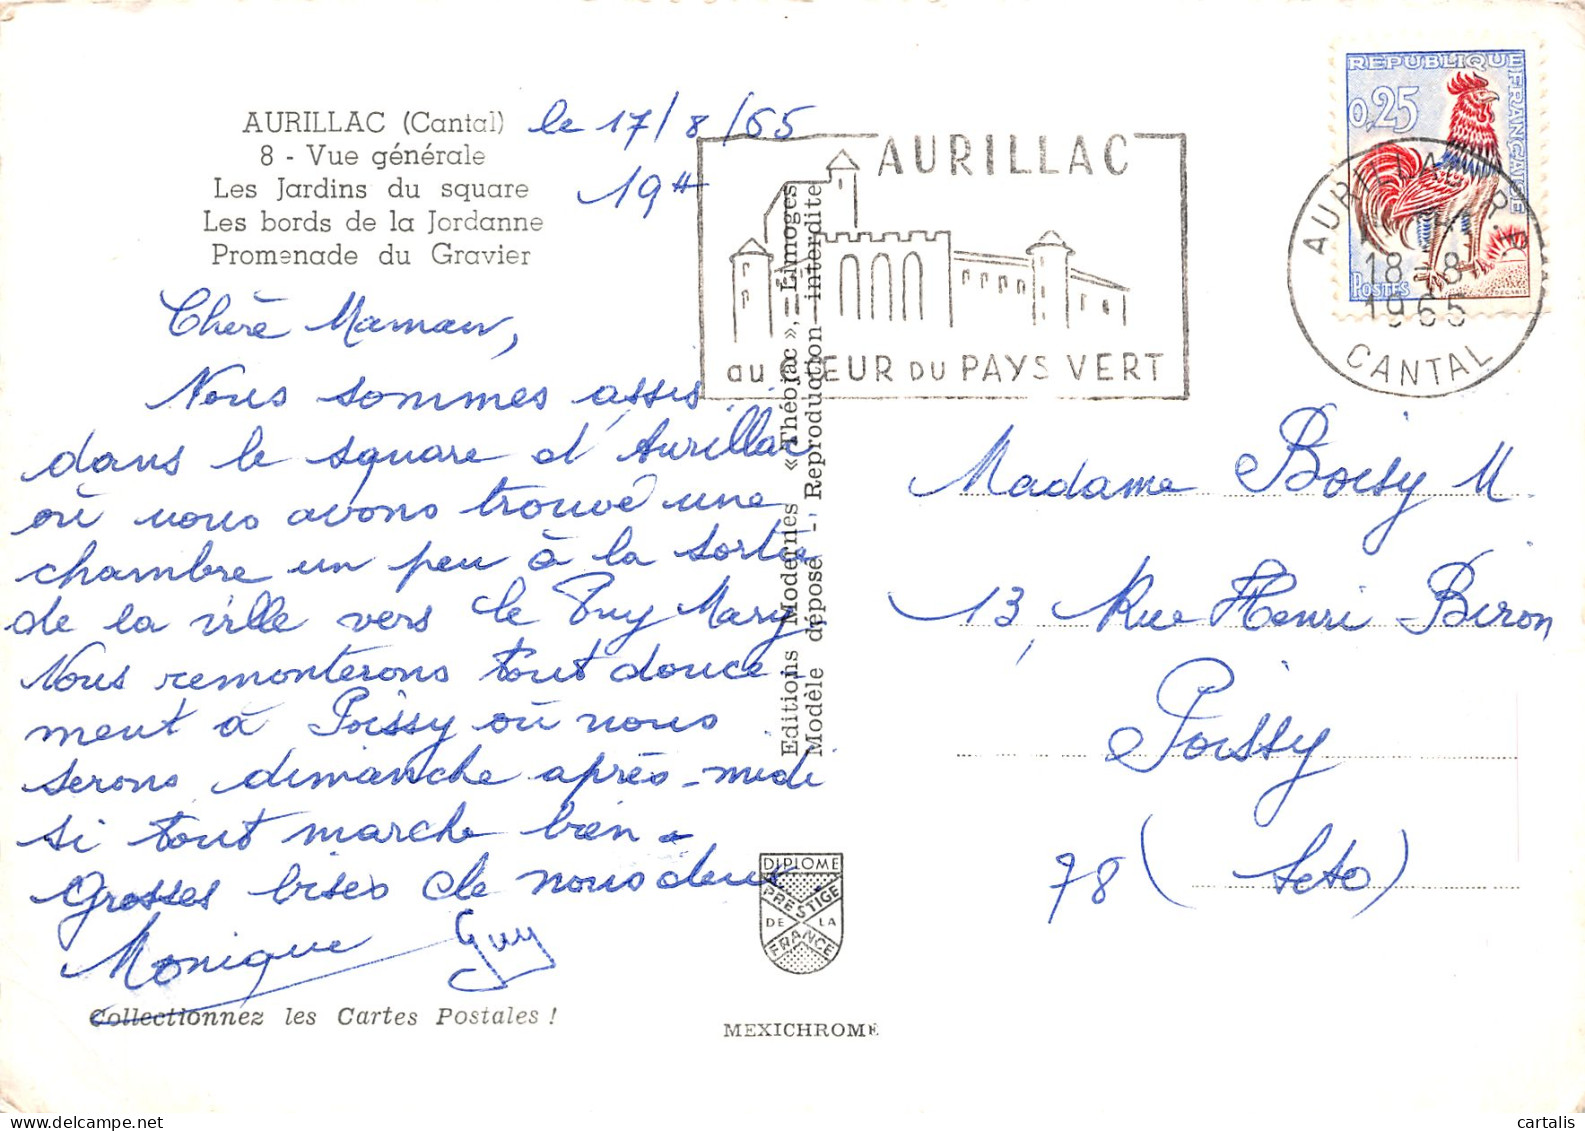 AURILLAC (Cantal)
8 - Vue générale
Les Jardins du square
Les bords de la Jordanne
Promenade du Gravier
le 17/8/65
19H
Chère Maman,
Nous sommes assis
dans le square d'Aurillac
où nous avons trouvé une
chambre un peu à la sortie
de la ville vers le Puy Mary
Nous remonterons tout douce-
ment à Poissy où nous
serons dimanche après-midi
si tout marche bien.
Grosses bises de nous deux
Monique Guy
Collectionnez les Cartes Postales !
Editions Modernes « Théojac », Limoges
Modèle déposé - Reproduction interdite
DIPLOME
PRESTIGE
DE LA
FRANCE
MEXICHROME
AURILLAC
au CŒUR DU PAYS VERT
REPUBLIQUE FRANÇAISE
0,25
POSTES
AURILLAC R.P.
18-8
1965
CANTAL
Madame Boisy M.
13, Rue Henri Biron
Poissy
78 (Seto)
© cartalis